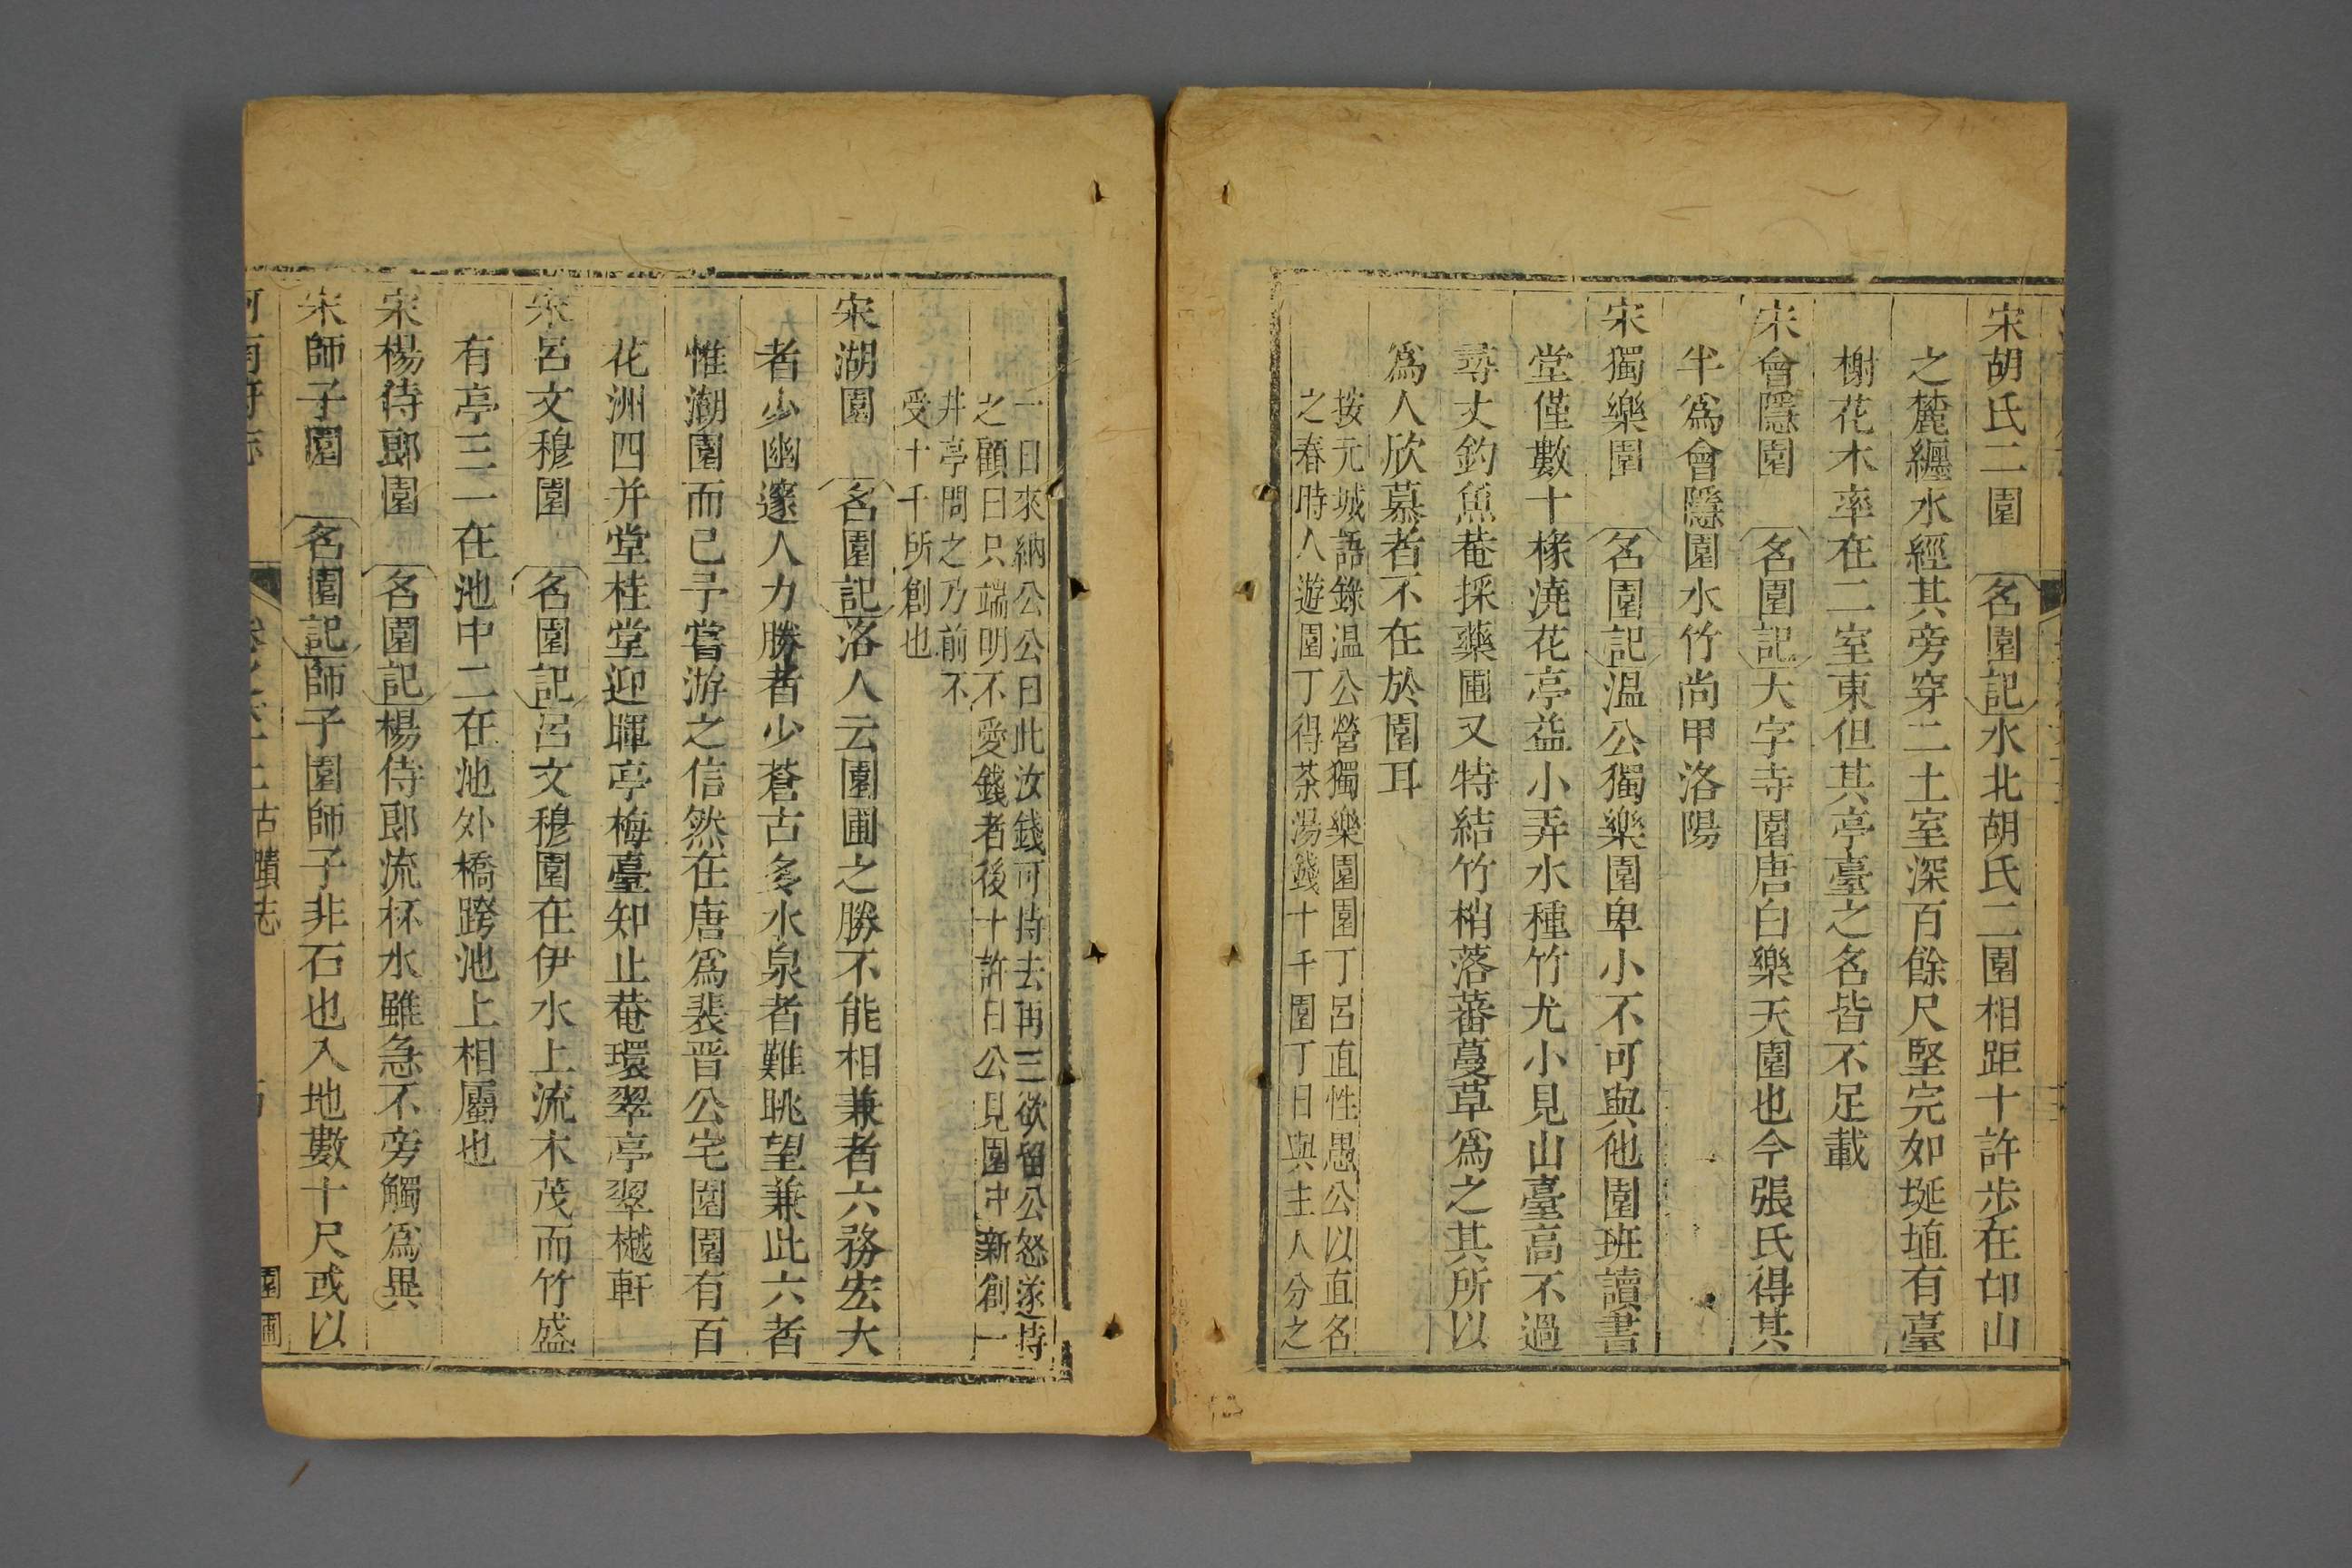 宋胡氏二園　名園記水北胡氏二園相距十許步在邙山
之麓纏水經其旁穿二土室深百餘尺堅完如埏埴有臺
榭花木率在二室東但其亭臺之名皆不足載
宋會隱園　名園記大字寺園唐白樂天園也今張氏得其
半爲會隱園水竹尚甲洛陽
宋獨樂園　名園記溫公獨樂園卑小不可與他園班讀書
堂僅數十椽澆花亭益小弄水種竹尤小見山臺高不過
尋丈釣魚菴採藥圃又特結竹梢落蕃蔓草爲之其所以
爲人欣慕者不在於園耳
按元城語錄温公營獨樂園園丁呂直性愚公以直名
之春時人遊園丁得茶湯錢十千園丁日與主人分之
一日來納公公曰此汝錢可持去再三欲留公怒遂持
之顧曰只端明不愛錢者後十許日公見園中新創一
井亭問之乃前不
受十千所創也
宋湖園　名園記洛人云園圃之勝不能相兼者六務宏大
者少幽邃人力勝者少蒼古多水泉者難眺望兼此六者
惟湖園而已予嘗游之信然在唐爲裴晋公宅園園有百
花洲四并堂桂堂迎暉亭梅臺知止菴環翠亭翠樾軒
宋呂文穆園　名園記呂文穆園在伊水上流木茂而竹盛
有亭三一在池中二在池外橋跨池上相屬也
宋楊侍郎園　名園記楊侍郎流杯水雖急不旁觸爲異
宋師子園　名園記師子園師子非石也入地數十尺或以
河南府志　古蹟志　園圃